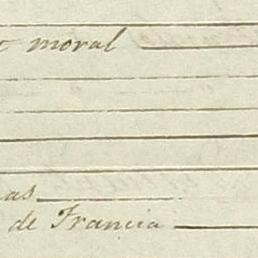 moral
as
de Francia